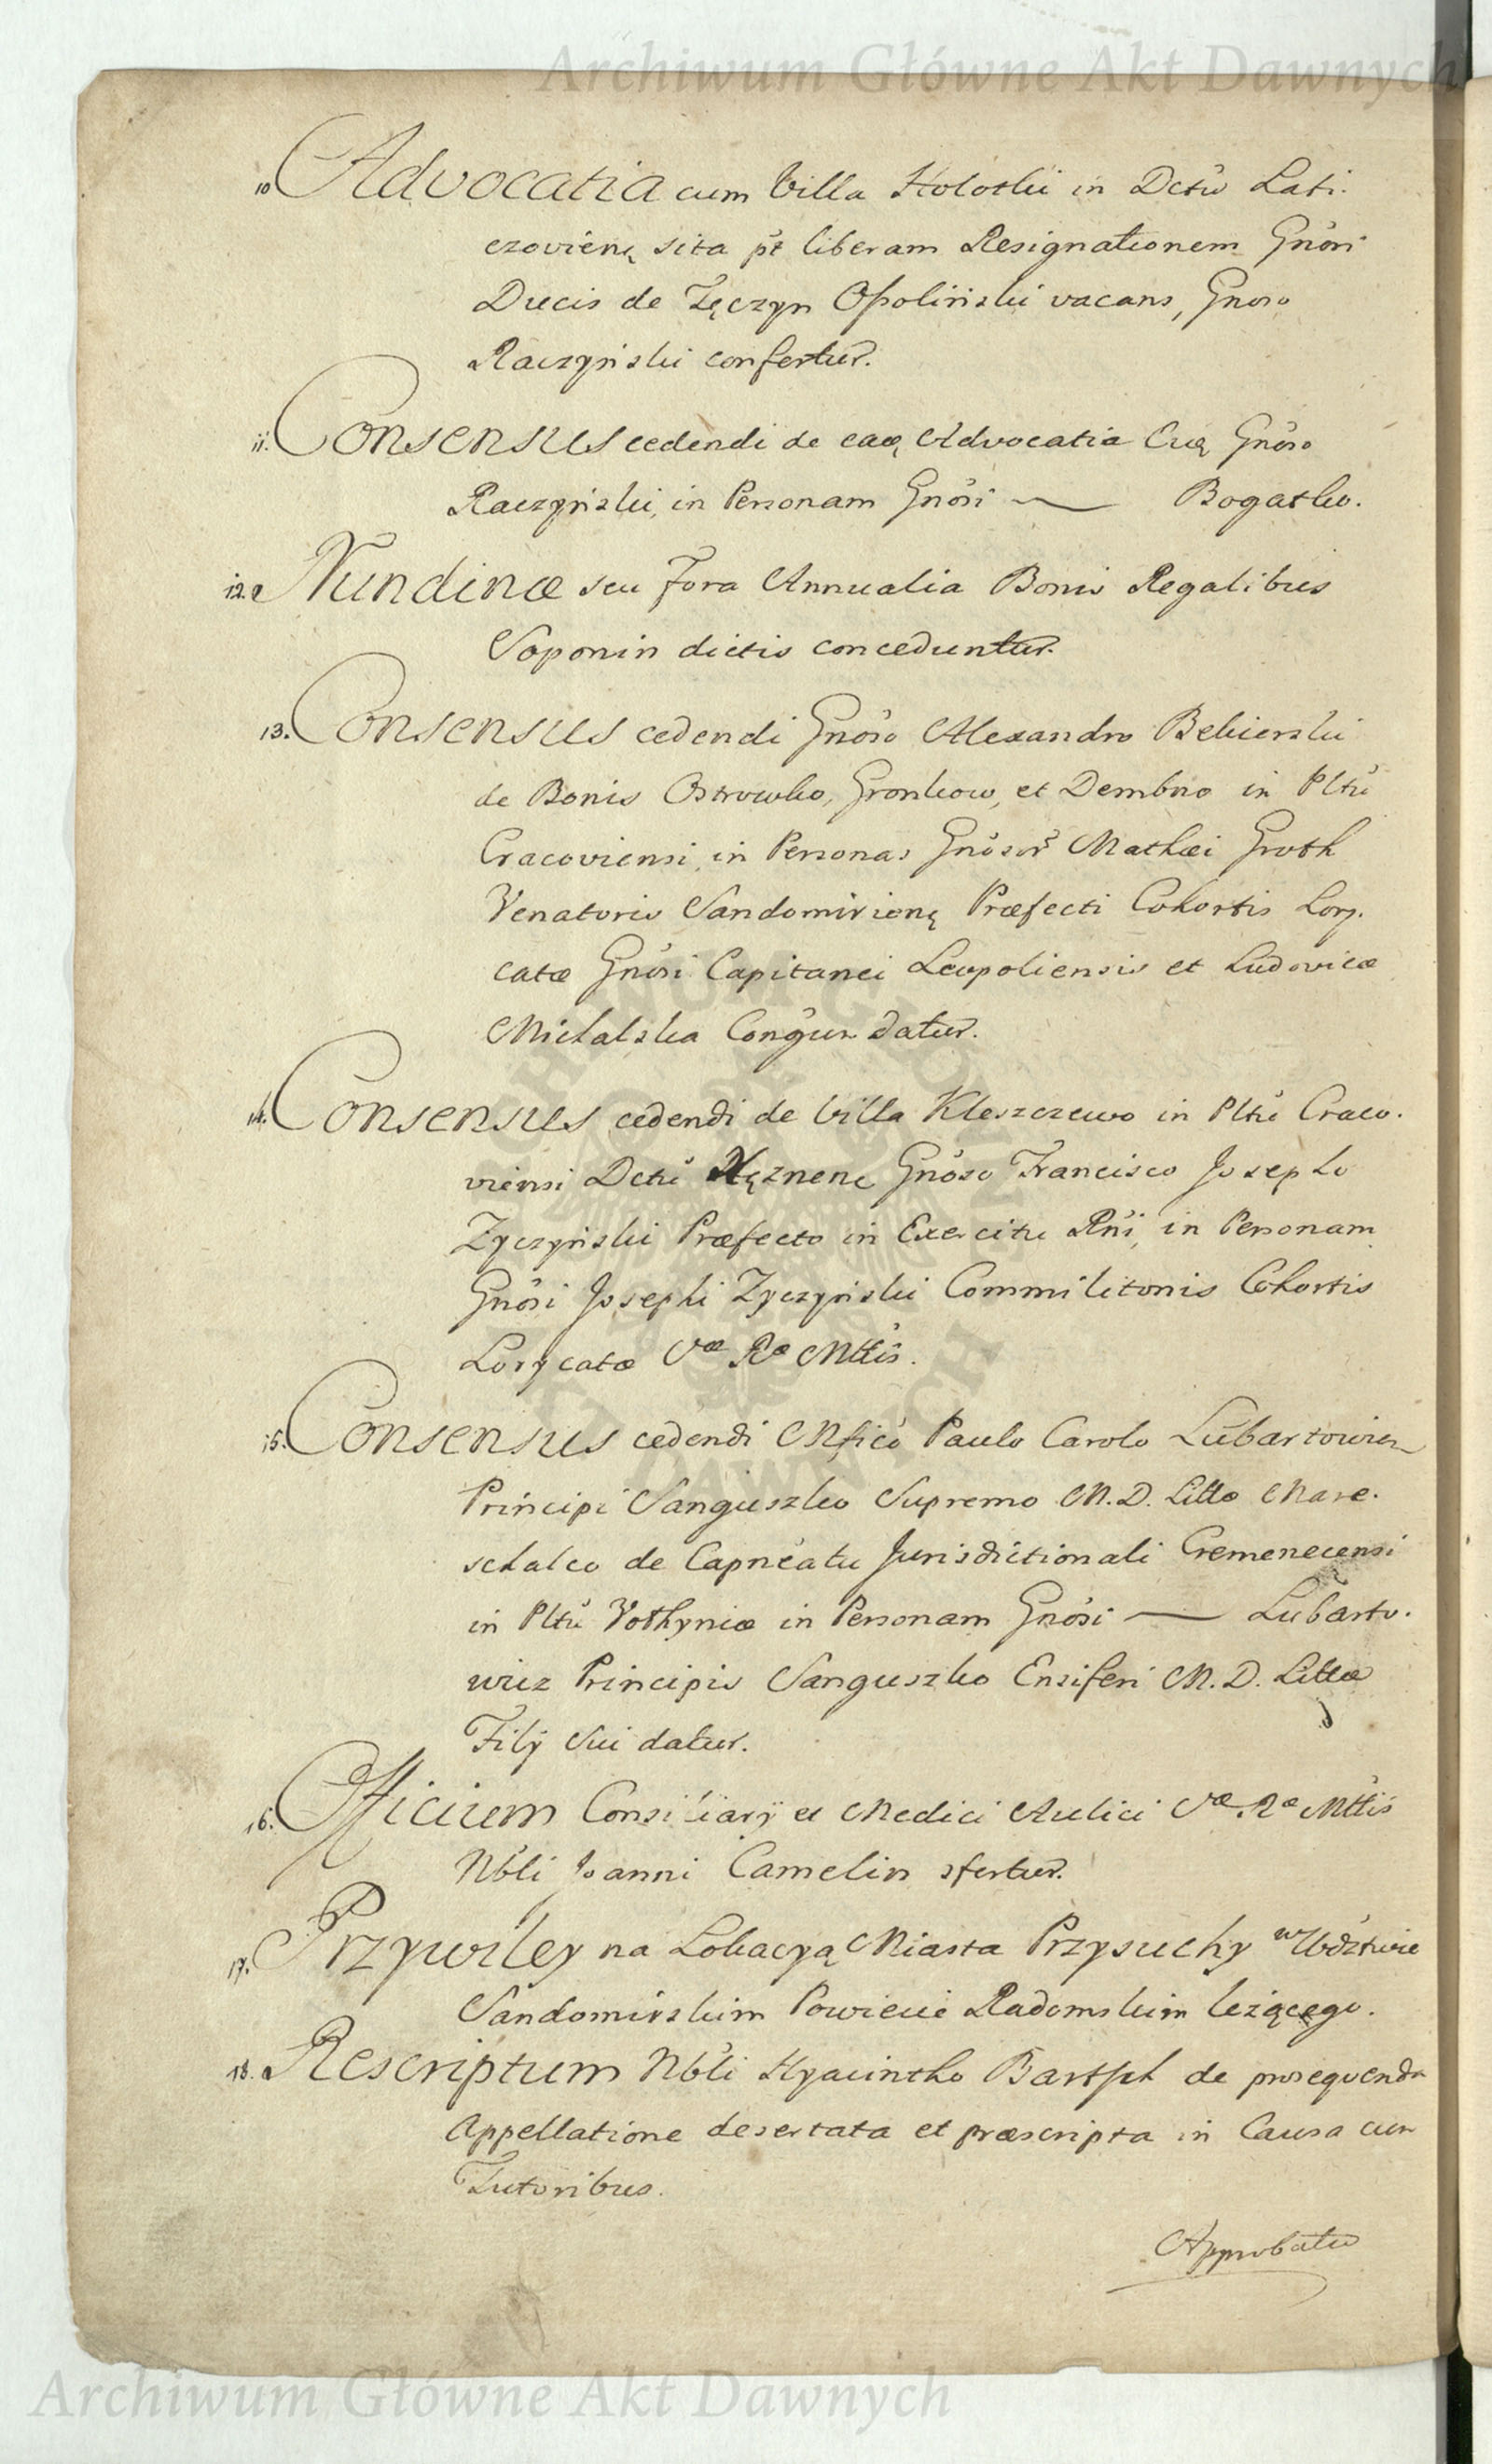 Archiwum Główne Akt Dawnych
10 Advocatia cum Villa Holotki in Dctu Lati-
czovien̨ sita p̃t liberam Resignationem Gnõsi
Ducis de Tęczyn Ossoliński vacans, Gnoso
Raczyński confertur.
11. Consensus cedendi de eaq̨ Advocatia Eiq̨ Gnõso
Raczyński, in Personam Gnõsi — Bogatko.
12. Nundinæ seu Fora Annualia Bonis Regalibus
Soponin dictis conceduntur.
13. Consensus cedendi Gnõso Alexandro Bekierski
de Bonis Ostrowko, Gronkow, et Dembno in Pltũ
Cracoviensi, in Personas Gnõsor̃ Mathæi Groth
Venatoris Sandomirien̨ Præfecti Cohortis Lory-
catæ Gnõsi Capitanei Leopoliensis et Ludovicæ
Michalska Conğum datur.
14. Consensus cedendi de Villa Kleszczewo in Pltũ Craco-
viensi Dctũ Xęznene Gnõso Francisco Josepho
Zyczyński Præfecto in Exercitu Rñi, in Personam
Gnõsi Josephi Zyczyński Commilitonis Cohortis
Lorycatæ Sæ Ræ Mttis.
15. Consensus cedendi Mfico Paulo Carolo Lubartowicz
Principi Sanguszko Supremo M. D. Litto Mare-
schalco de Capneatu Jurisdictionali Cremenecensi
in Pltũ Volhyniæ in Personam Gnõsi — Lubarto-
wicz Principis Sanguszko Ensiferi M. D. Littæ
Filÿ Sui datur.
16. Officium Consiliarÿ et Medici Aulici Sæ Ræ Mttis
Nbli Joanni Camelin ɔfertur.
17. Przywiley na Lokacyą Miasta Przysuchy w Wdztwie
Sandomirskim Powiecie Radomskim leżącego.
18. Rescriptum Nbli Hyacintho Bartsch de prosequenda
Appellatione desertata et præscripta in Causa cum
Tutoribus.
Approbatio
Archiwum Główne Akt Dawnych